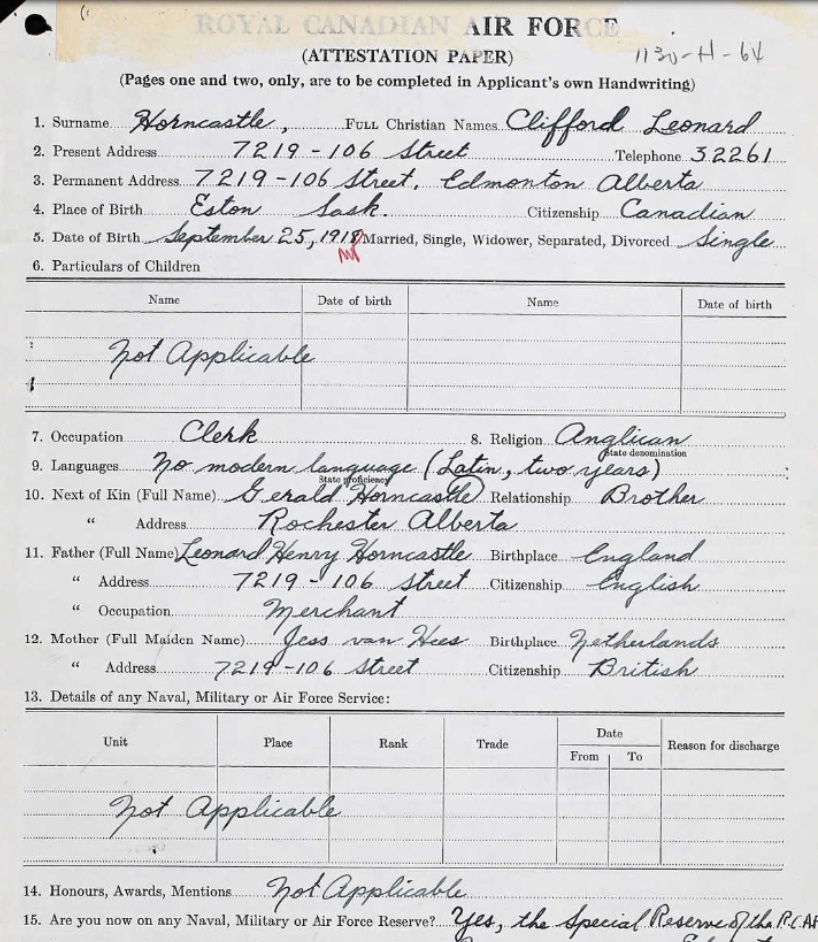 ROYAL CANADIAN AIR FORCE
(ATTESTATION PAPER) 1130-H-64
(Pages one and two, only, are to be completed in Applicant's own Handwriting)
1. Surname Horncastle, FULL Christian Names Clifford Leonard
2. Present Address 7219-106 Street Telephone 32261
3. Permanent Address 7219-106 Street, Edmonton Alberta
4. Place of Birth Eston Sask. Citizenship Canadian
5. Date of Birth September 25, 1918 Married, Single, Widower, Separated, Divorced Single
6. Particulars of Children
Name Date of birth Name Date of birth
Not Applicable
7. Occupation Clerk 8. Religion Anglican
State denomination
9. Languages No modern language (Latin, two years)
State proficiency
10. Next of Kin (Full Name) Gerald Horncastle Relationship Brother
" Address Rochester Alberta
11. Father (Full Name) Leonard Henry Horncastle Birthplace England
" Address 7219-106 Street Citizenship English
" Occupation Merchant
12. Mother (Full Maiden Name) Jess van Hees Birthplace Netherlands
" Address 7219-106 Street Citizenship British
13. Details of any Naval, Military or Air Force Service:
Unit Place Rank Trade Date Reason for discharge
From To
Not Applicable
14. Honours, Awards, Mentions Not Applicable
15. Are you now on any Naval, Military or Air Force Reserve? Yes, the Special Reserve of the R.C.AF